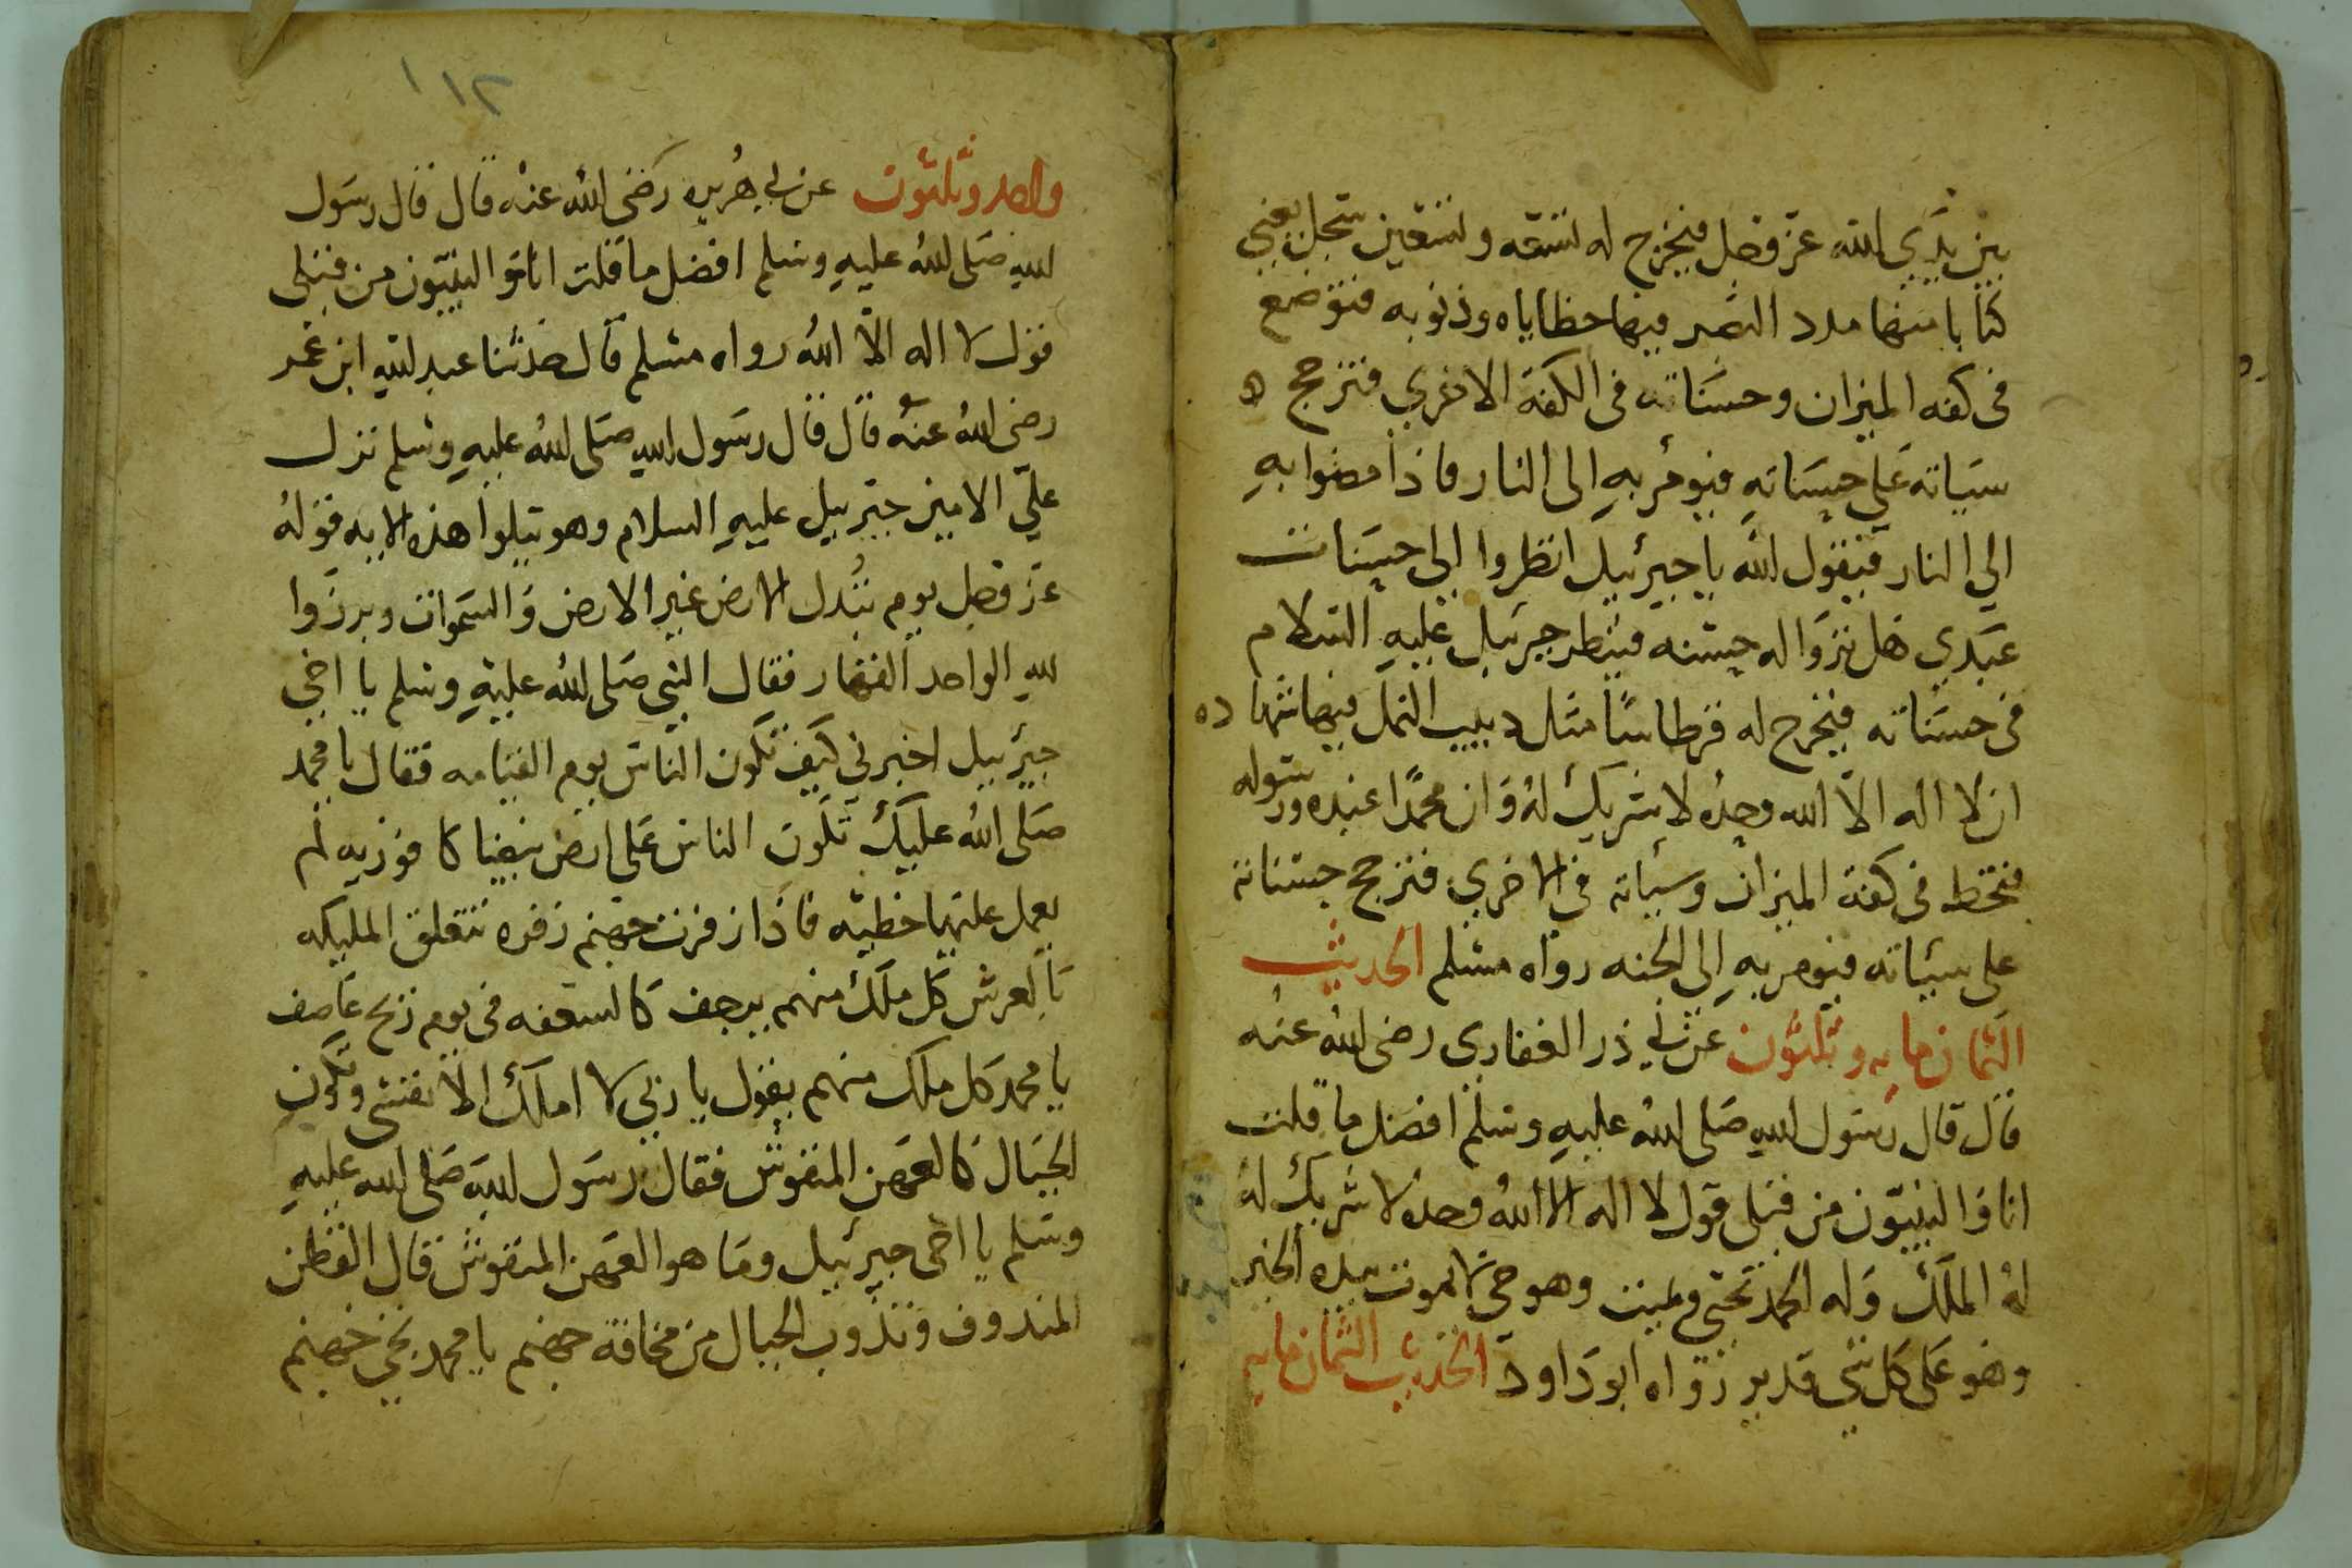 بين يدي الله عز وجل فيخرج له تسعه وتسعين سجل يعني
كتابا منها مدد البصر فيها خطاياه وذنوبه فتوضع
في كفه الميزان وحسناته في الكفة الاخري فترجح
سياته على حسناته فيومر به الى النار فاذا مضوا به
الي النار فيقول الله يا جبرئيل انظروا الى حسنات
عبدي هل تروا له حسنه فينظر جبرئيل عليه السلام
في حسناته فيخرج له قرطاسا مثل دبيب النمل فيها شهاده
ان لا اله الا الله وحده لا شريك له وان محمدا عبده ورسوله
فتحط في كفة الميزان وسياته في الاخري فترجح حسناته
على سيئاته فيومر به الى الجنه رواه مسلم الحديث
الثمان مايه وثلثون عن ابي ذر الغفاري رضى الله عنه
قال قال رسول الله صلى الله عليه وسلم افضل ما قلت
انا والنبيون من قبلي قول لا اله الا الله وحده لا شريك له
له الملك وله الحمد يحيي ويميت وهو حي لا يموت بيده الخير
وهو على كل شي قدير رواه ابو داود الحديث الثمان مايه
١١٢
واحد وثلثون عن ابي هريره رضى الله عنه قال قال رسول
الله صلى الله عليه وسلم افضل ما قلت انا والنبيون من قبلى
قول لا اله الا الله رواه مسلم قال حدثنا عبد الله ابن عمر
رضى الله عنه قال قال رسول الله صلى الله عليه وسلم نزل
علي الامين جبرييل عليه السلام وهو يتلوا هذه الايه قوله
عز وجل يوم تبدل الارض غير الارض والسموات وبرزوا
لله الواحد القهار فقال النبي صلى الله عليه وسلم يا اخي
جبرئيل اخبرني كيف تكون الناس يوم القيامه فقال يا محمد
صلى الله عليك تكون الناس على ارض بيضا كافوريه لم
يعمل عليها خطيئه فاذا زفرت جهنم زفره تتعلق المليكه
بالعرش كل ملك منهم يرجف كالسعفه في يوم ريح عاصف
يا محمد كل ملك منهم يقول يا ربي لا املك الا نفسي وتكون
الجبال كالعهن المنفوش فقال رسول الله صلى الله عليه
وسلم يا اخى جبرئيل وما هو العهن المنفوش قال القطن
المندوف وتذوب الجبال من مخافة جهنم يا محمد تجي جهنم